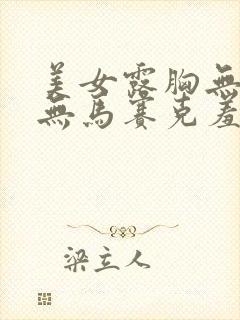 美女露胸無
無馬賽克羞
梁立人